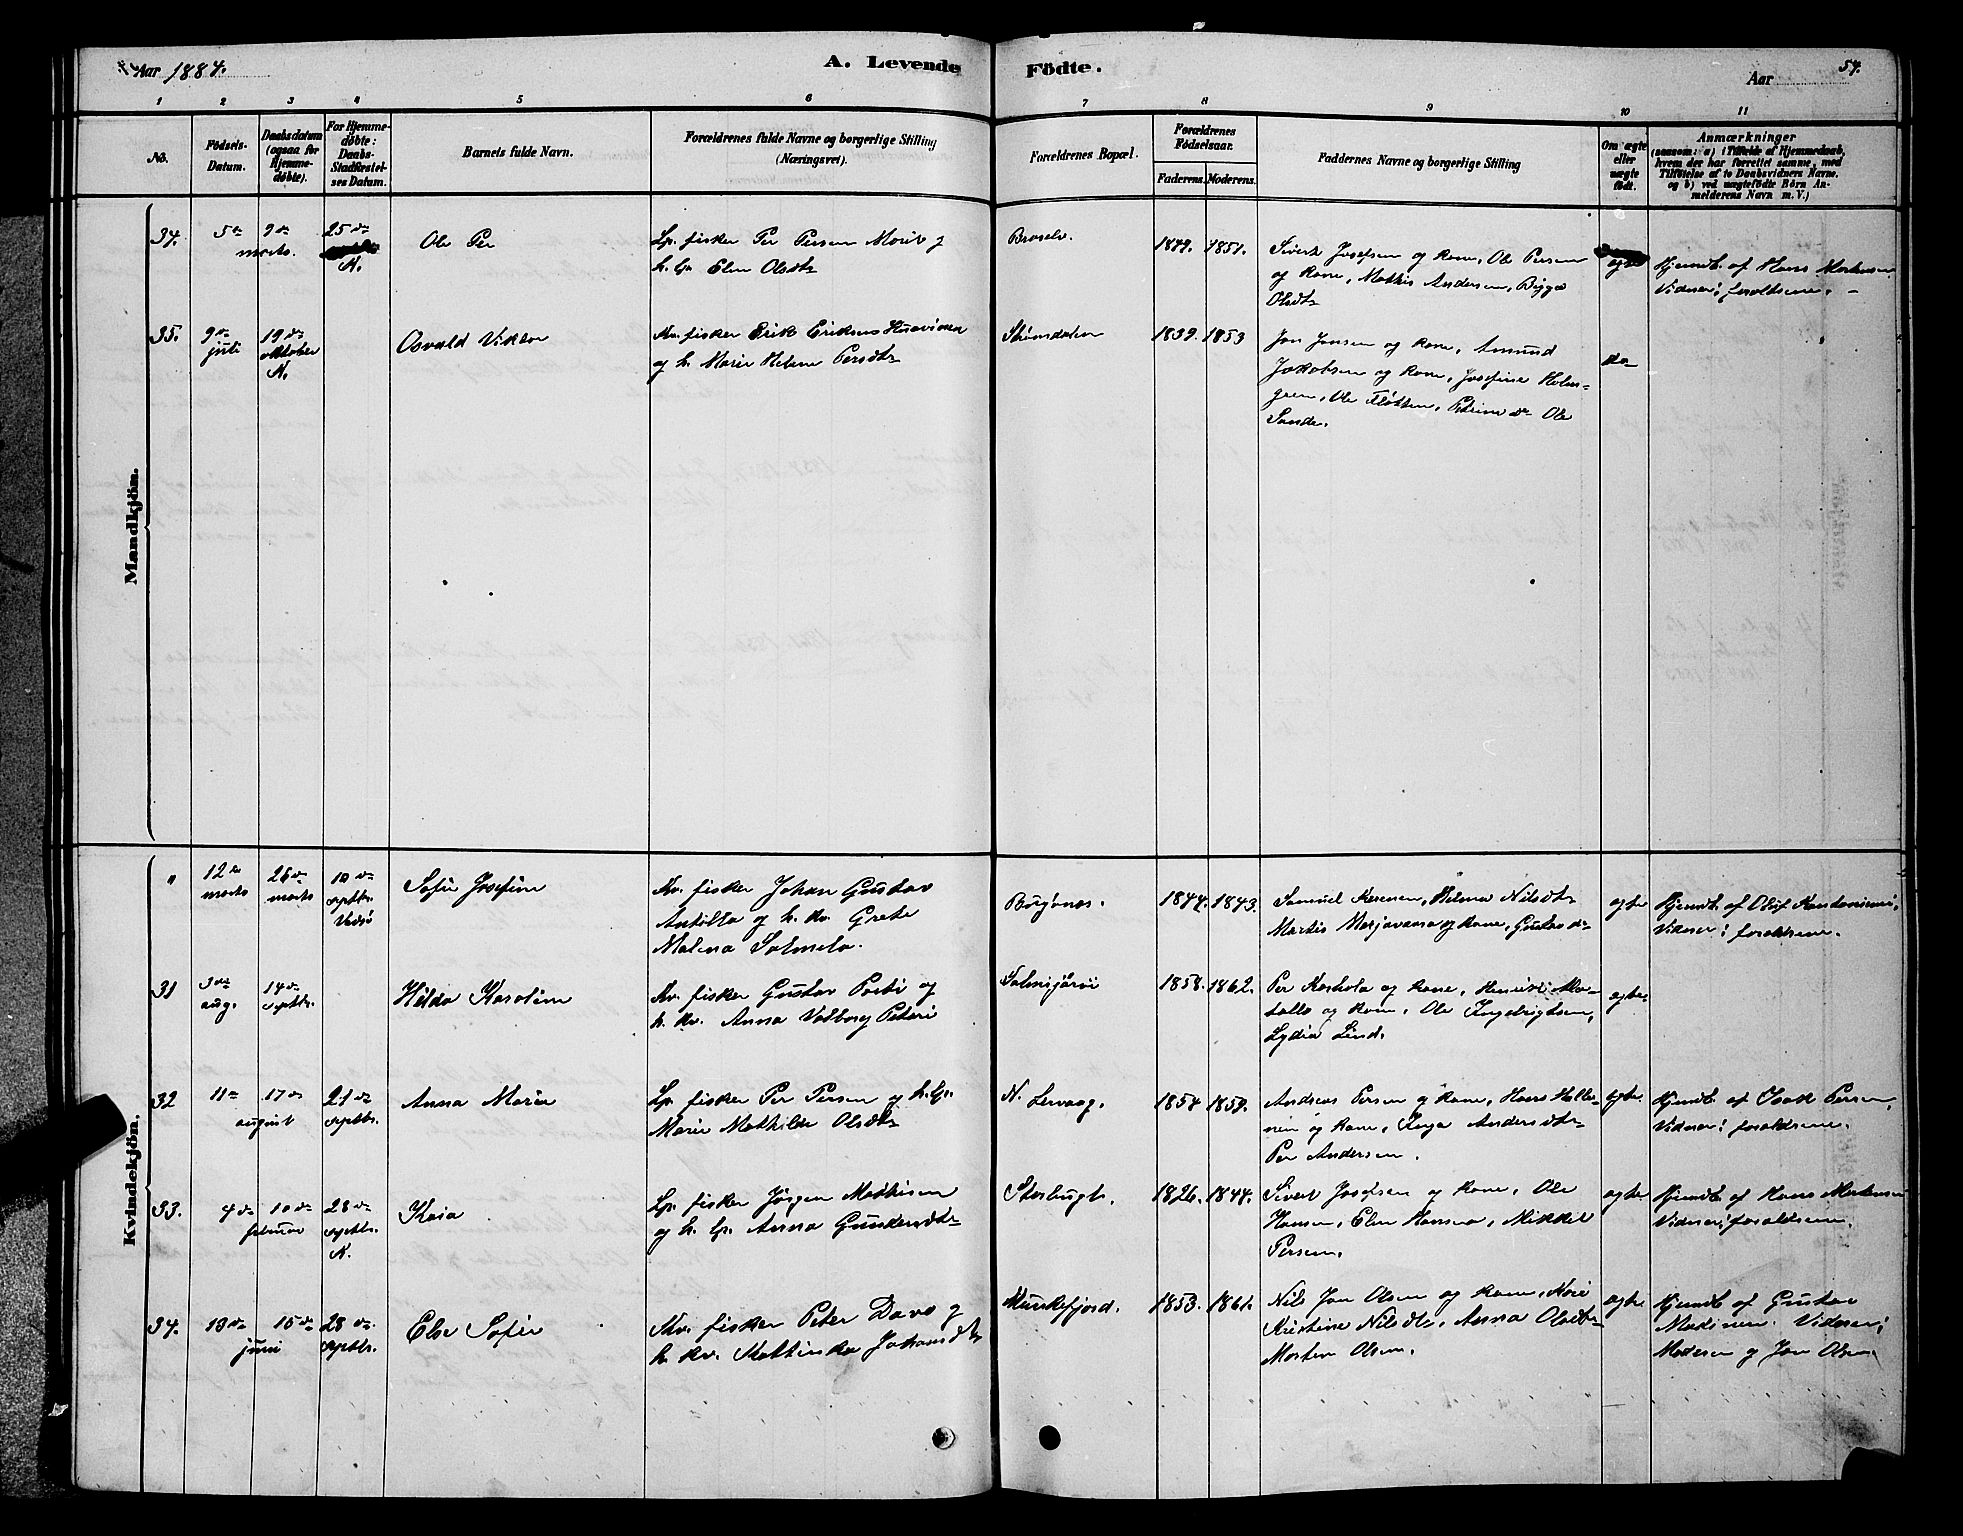 Aar 1884.
A. Levende Födte.
Aar
57.
1 2 3 4 5 6 7 8 9 10 11
No.
Födsels-
Datum.
Daabsdatum
(ogsaa for
Hjemme-
döbte).
For Hjemme-
döbte:
Daabs-
Stadfæstel-
ses Datum.
Barnets fulde Navn.
Forældrenes fulde Navne og borgerlige Stilling
(Næringsvei).
Forældrenes Bopæl.
Forældrenes
Födselsaar.
Faderens. Moderens.
Faddernes Navne og borgerlige Stilling
Om ægte
eller
uægte
födt.
Anmærkninger
(saasom: a) i Tilfælde af Hjemmedaab,
hvem der har forrettet samme, med
Tilföielse af to Daabsvidners Navne,
og b) ved uægtefödte Börn An-
melderens Navn m. V.)
Mandkjön.
34.
5te
9de
marts.
25de
N.
Ole Per
Lp. fisker Per Persen
h. lp. Elen Olsdtr
1849. 1851.
Sivert Josefsen og Kone, Ole Persen
og Kone, Mathis Andersen,
Olsdtr
ægte
Hjemdb. af Hans Mortensen
Vidner: forældrene.
35.
9de
juli
19de
oktober
N.
Osvald Viktor
Kv. fisker Erik Eriksen
og h. Marie Helene Persdtr
1839. 1853
Jon Jonsen og Kone, Amund
Jakobsen og Kone, Josefine Holm-
gren, Ole Fløtten, Petrine do Ole
Sande.
do
Kvindekjön.
"
12te
marts
26de
marts
10de
septbr.
Vadsö
Sofie Josefine
Kv. fisker Johan Gustav
Antilla og h. kv. Grete
Malena Salmela.
Bugönes.
1844. 1843.
Samuel Helena Nilsdtr
Gustav
ægte
Hjemdb. af Olof
Vidner: forældrene.
31
3de
aug.
14de
septbr.
Hilda Karoline
Kv. fisker Gustav Porti og
h. kv. Anna Valborg Peteri
1858. 1862.
Per og Kone, Henrik Ma-
tallo og Kone, Ole Ingebrigtsen,
Lydia Lind.
ægte.
32
11te
17de
august
21de
septbr.
Anna Marie
Lp. fisker Per Persen og h. lp.
Marie Mathilde Olsdtr
N. Lervaag.
1854 1859.
Andreas Persen og Kone, Hans Halle-
nen og Kone, Inga Andersdtr
Per Andersen.
ægte.
Hjemdb. af Isak Persen,
Vidner: forældrene.
33.
4de
10de
februar
28de
septbr.
N.
Kaia
Lp. fisker Jörgen Mathisen
og h. lp. Anna Gundersdtr
Storbugt.
1826. 1844.
Sivert Josefsen og Kone, Ole
Hansen, Elen Hansen, Mikkel
Persen.
ægte
Hjemdb. af Hans Mortensen
Vidner: forældrene.
34.
13de
15de
juni
28de
septbr.
Else Sofie
Kv. fisker Peter Davo og
h. kv. Kathinka Johansdtr
Munkefjord.
1853. 1861.
Nils Jon Olsen og Kone,
Kristine Nilsdtr, Anna Olsdtr
Morten Olsen.
ægte.
Hjemdb. af Gustav
Vidner:
Madsen og Jon Olsen